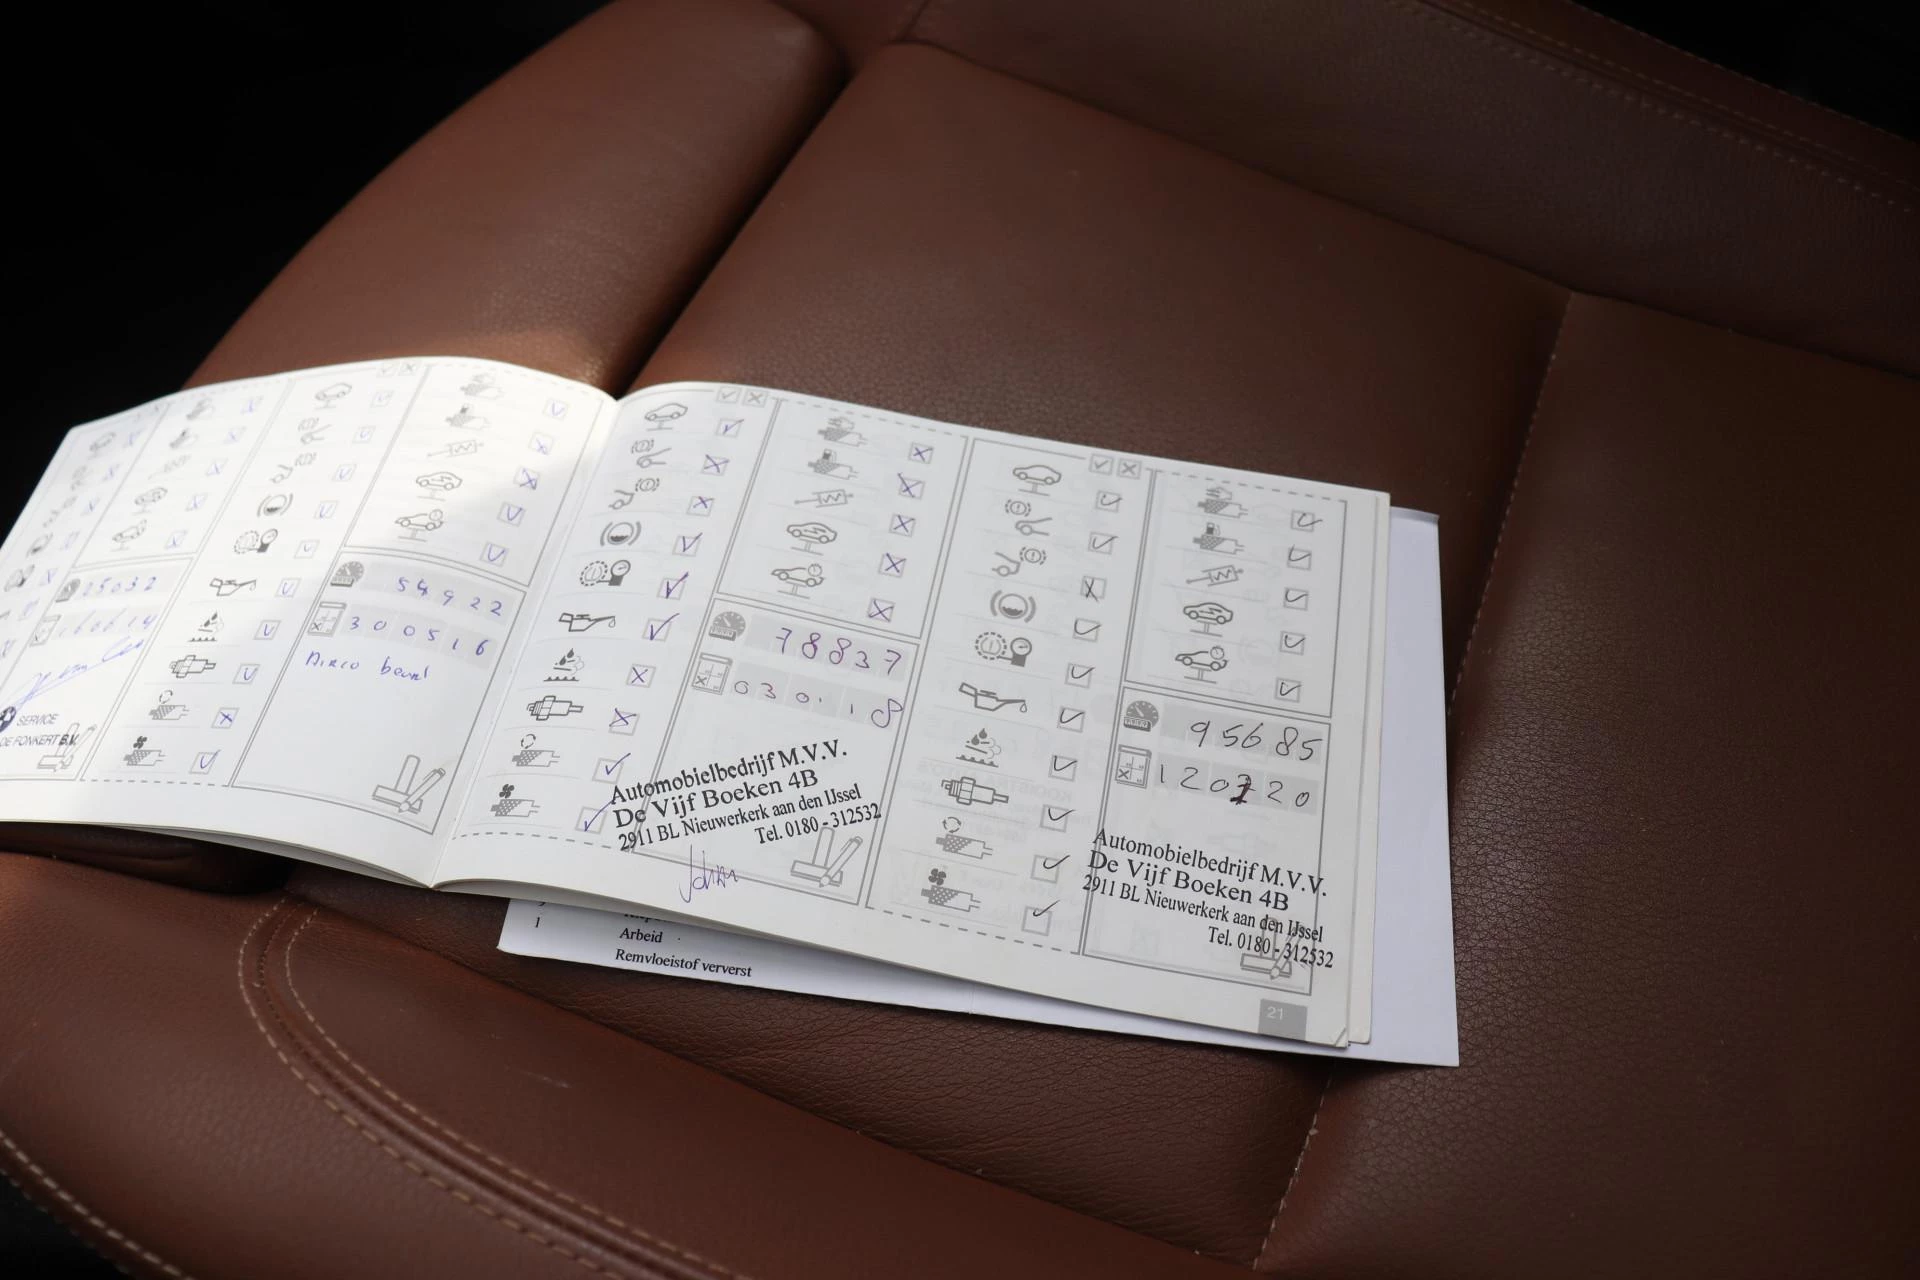 25032
160614
SERVICE
DE FONKERT B.V.
54922
300516
78837
Automobielbedrijf M.V.V.
De Vijf Boeken 4B
2911 BL Nieuwerkerk aan den IJssel
Tel. 0180 - 312532
95685
120720
Automobielbedrijf M.V.V.
De Vijf Boeken 4B
2911 BL Nieuwerkerk aan den IJssel
Tel. 0180 - 312532
21
1
Arbeid
Remvloeistof ververst